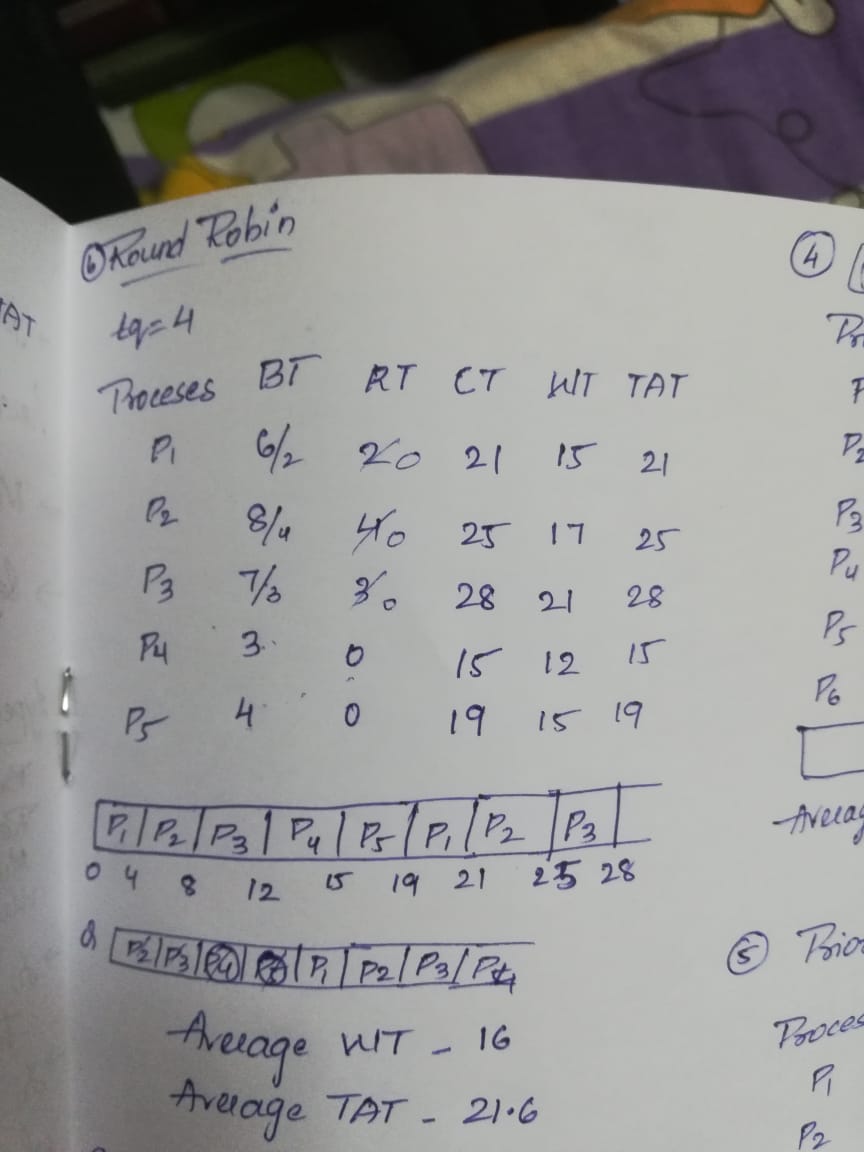 ⑥ Round Robin
tq=4
Proceses BT RT CT WT TAT
P1 6/2 2 0 21 15 21
P2 8/4 4 0 25 17 25
P3 7/3 3 0 28 21 28
P4 3 0 15 12 15
P5 4 0 19 15 19
P1 P2 P3 P4 P5 P1 P2 P3
0 4 8 12 15 19 21 25 28
P2 P3 P4 P1 P2 P3
Average WT - 16
Average TAT - 21.6
TAT
④
P2
P3
P4
P5
P6
⑤
P1
P2